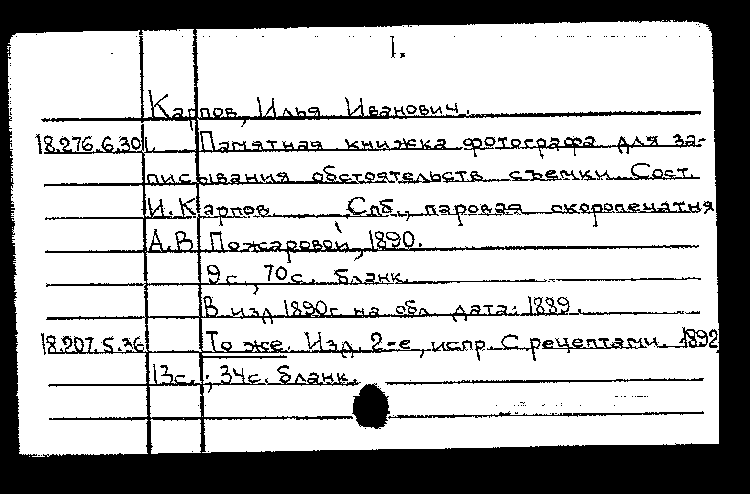 I.
Карпов, Илья Иванович.
18.276.6.30 1. Памятная книжка фотографа для за-
писывания обстоятельств съемки. Сост.
И. Карпов. Спб., паровая скоропечатня
А.В. Пожаровой, 1890.
9с., 70с. бланк.
В изд. 1890г. на обл. дата: 1889.
18.207.5.36 То же. Изд. 2-е, испр. С рецептами. 1892
13с.; 34с. бланк.